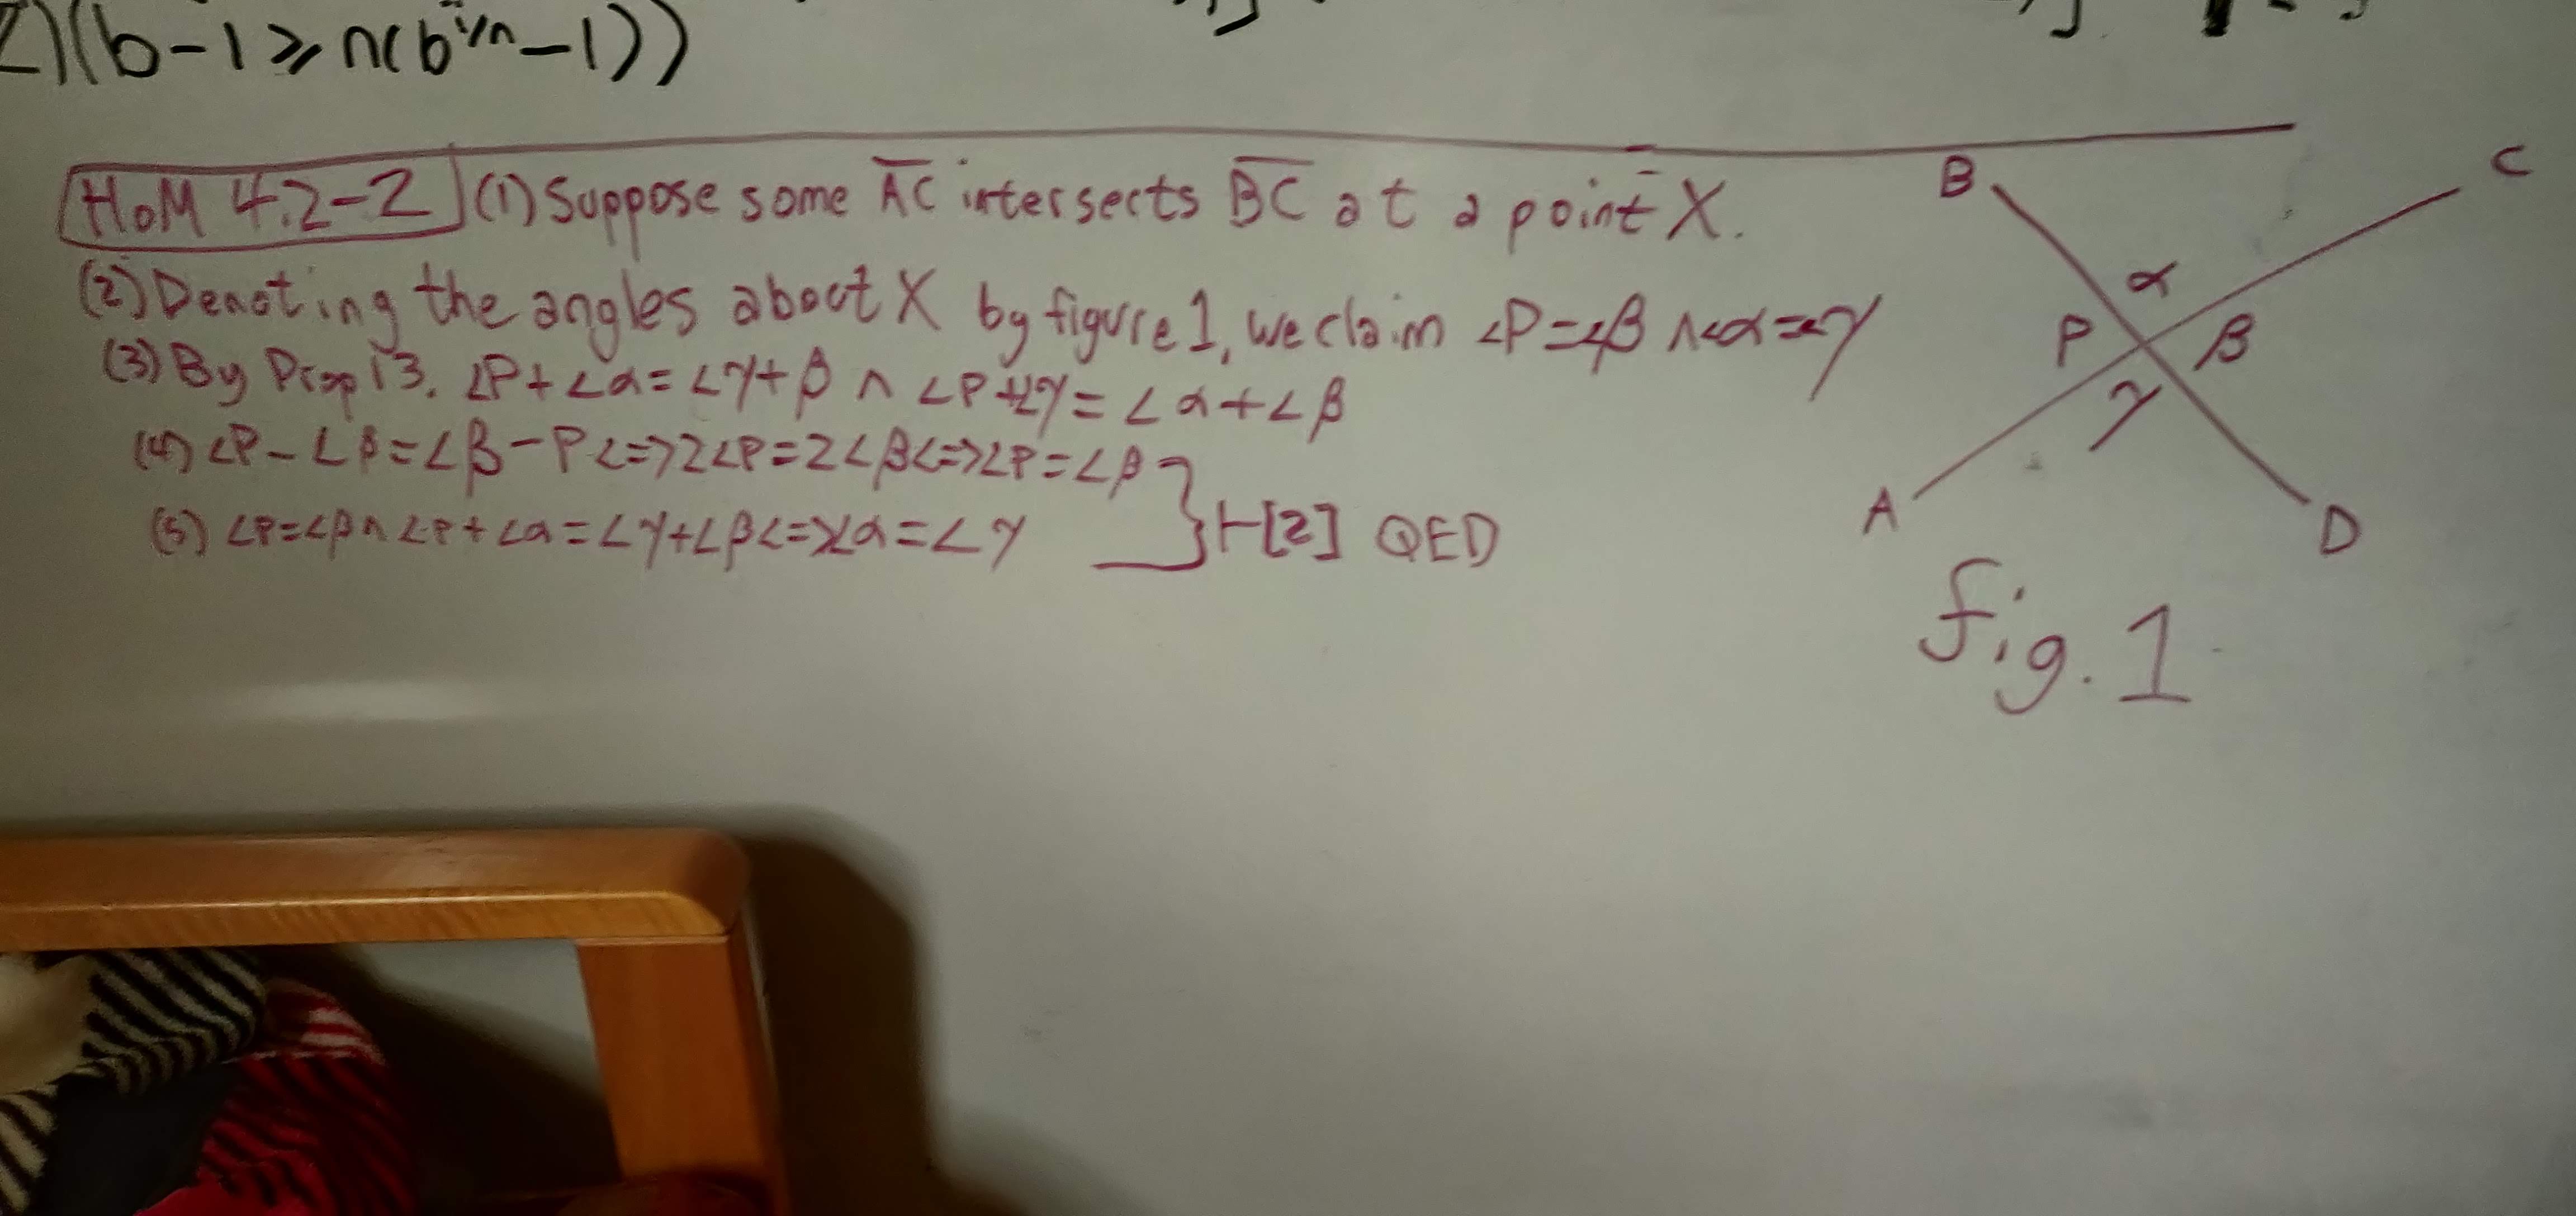 (b-1⩾n(b^1/n-1))
HoM 4.2-2 (1) Suppose some A̅C̅ intersects B̅C̅ at a point X.
(2) Denoting the angles about X by figure 1, we claim ∠P=∠β ∧ ∠α=∠γ
(3) By Prop 13. ∠P+∠α=∠γ+β ∧ ∠P+∠γ=∠α+∠β
(4) ∠P-∠β=∠β-P<=>2∠P=2∠β<=>∠P=∠β
(5) ∠P=∠β∧∠P+∠α=∠γ+∠β<=>∠α=∠γ
}⊢[2] QED
B
C
α
P
β
γ
A
D
fig. 1